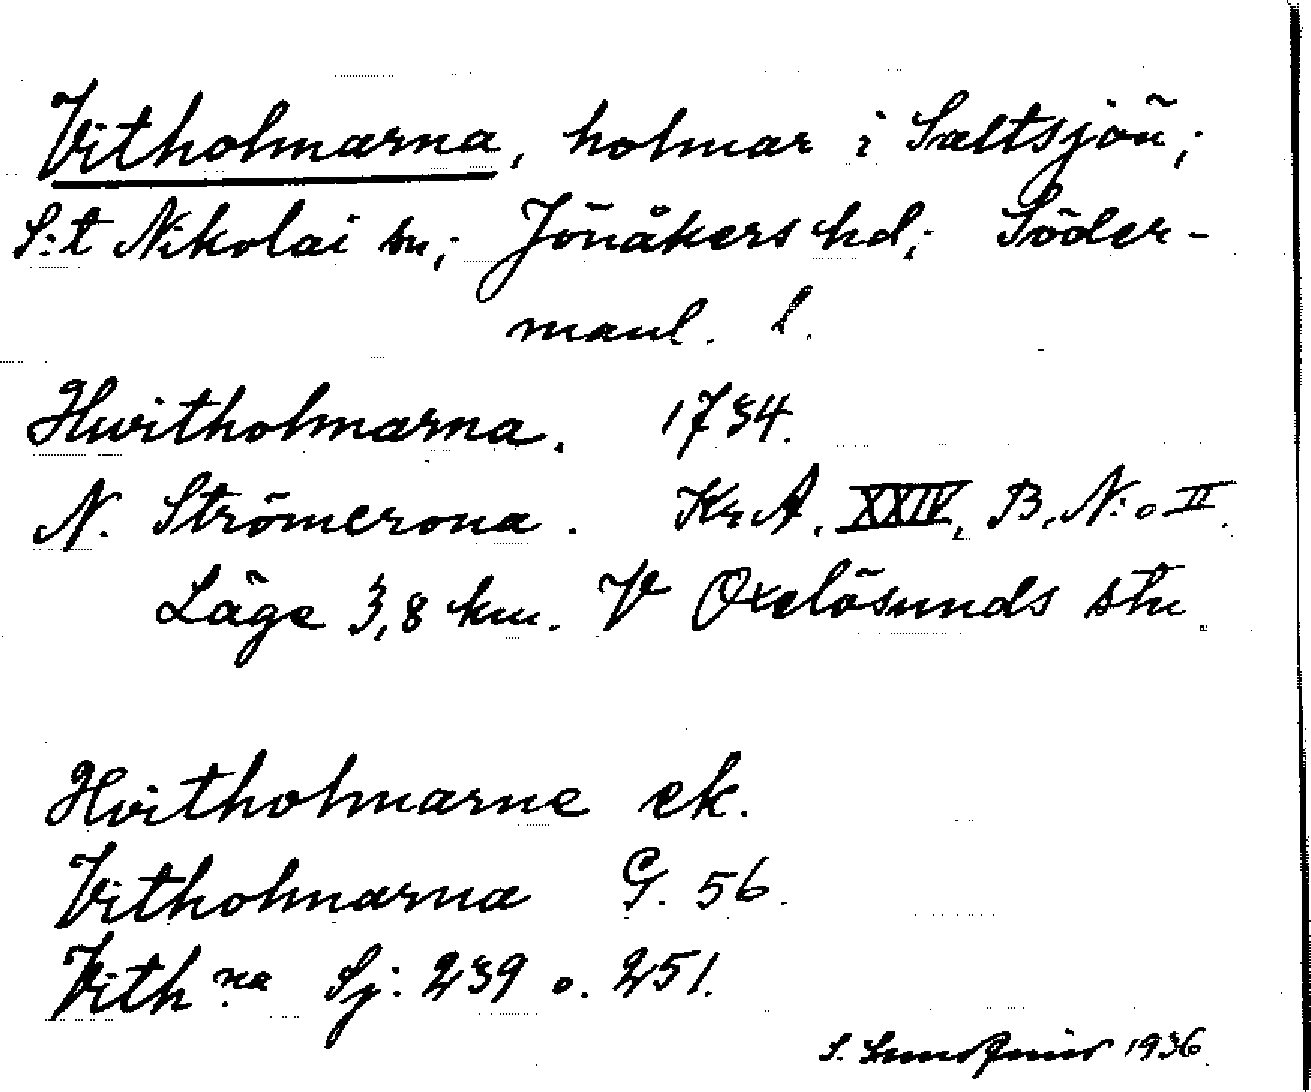 Vitholmarna, holmar i Saltsjön;
S:t Nikolai sn; Jönåkers hd; Söder-
manl. l.
Hwitholmarna. 1734.
N. Strömcrona. Kr. A. XXIV, B, N:o II.
Läge 3,8 km. V Oxelösunds stn.
Hvitholmarne ek.
Vitholmarna G. 56.
Vith na Sj: 239 o. 251.
S. 1936.